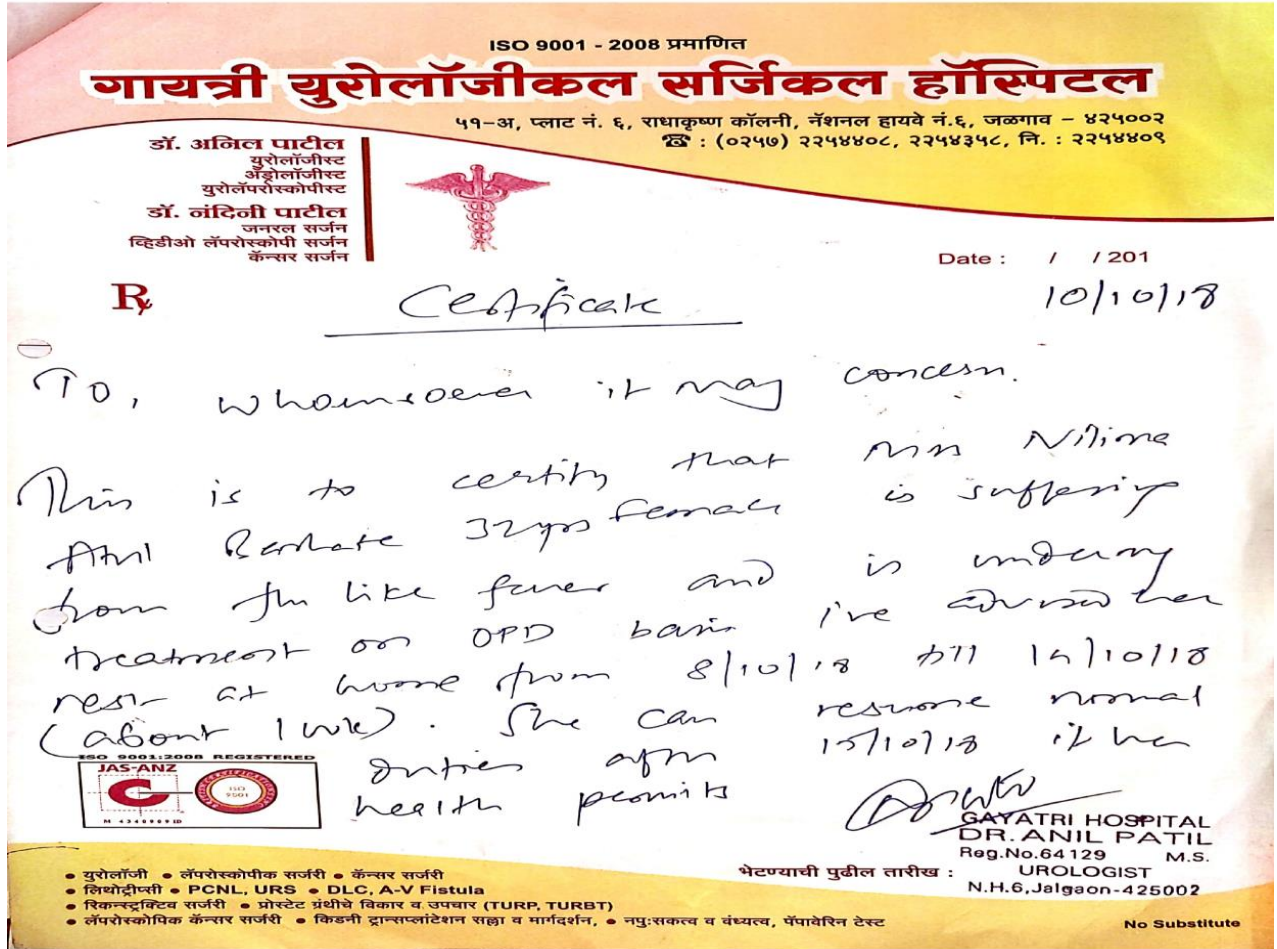 ISO 9001 - 2008 प्रमाणित
गायत्री युरोलॉजीकल सर्जिकल हॉस्पिटल
५१-अ, प्लाट नं. ६, राधाकृष्ण कॉलनी, नॅशनल हायवे नं.६, जळगाव - ४२५००२
☎ : (०२५७) २२५४४०८, २२५४३५८, नि. : २२५४४०९
डॉ. अनिल पाटील
युरोलॉजीस्ट
अँड्रोलॉजीस्ट
युरोलॅपरोस्कोपीस्ट
डॉ. नंदिनी पाटील
जनरल सर्जन
व्हिडीओ लॅपरोस्कोपी सर्जन
कॅन्सर सर्जन
Date : / / 201
10/10/18
Rx
Certificate
To, whomsoever it may concern.
This is to certify that Miss Nilima
Atul 32yrs female is suffering
from flu like fever and is undergoing
treatment on OPD basis i've advised her
rest at home from 8/10/18 till 14/10/18
(about 1 wk). She can resume normal
duties after 15/10/18 if her
health permits
ISO 9001:2008 REGISTERED
JAS-ANZ
ISO
9001
GAYATRI HOSPITAL
DR. ANIL PATIL
Reg.No.64129 M.S.
UROLOGIST
N.H.6,Jalgaon-425002
भेटण्याची पुढील तारीख :
• युरोलॉजी • लॅपरोस्कोपीक सर्जरी • कॅन्सर सर्जरी
• लिथोट्रीप्सी • PCNL, URS • DLC, A-V Fistula
• रिकन्स्ट्रक्टिव सर्जरी • प्रोस्टेट ग्रंथीचे विकार व उपचार (TURP, TURBT)
• लॅपरोस्कोपिक कॅन्सर सर्जरी • किडनी ट्रान्सप्लांटेशन सल्ला व मार्गदर्शन, • नपुःसकत्व व वंध्यत्व, पॅपावेरिन टेस्ट
No Substitute